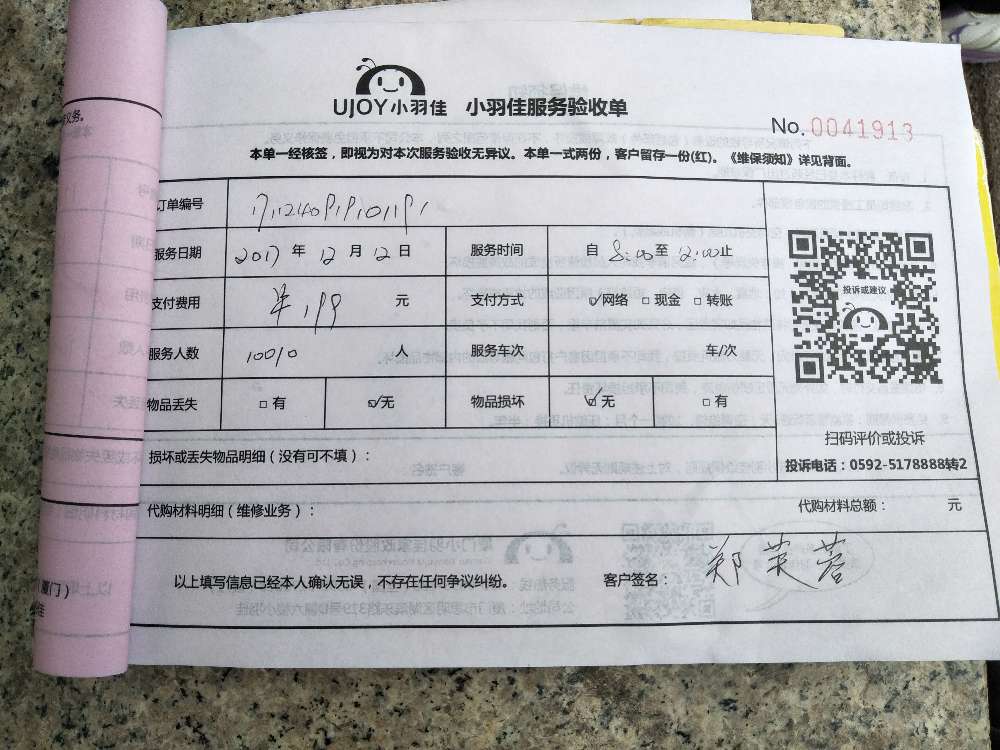 UJOY小羽佳 小羽佳服务验收单
No.0041913
本单一经核签，即视为对本次服务验收无异议。本单一式两份，客户留存一份(红)。《维保须知》详见背面。
订单编号
服务日期 2017 年 12 月 12 日 服务时间 自 8:00 至 12:00 止
支付费用 元 支付方式 ☑网络 □现金 □转账
服务人数 人 服务车次 车/次
物品丢失 □有 ☑无 物品损坏 ☑无 □有
投诉或建议
扫码评价或投诉
投诉电话：0592-5178888转2
损坏或丢失物品明细（没有可不填）：
代购材料明细（维修业务）： 代购材料总额： 元
以上填写信息已经本人确认无误，不存在任何争议纠纷。 客户签名： 郑芙蓉